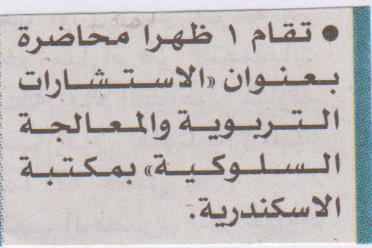 ● تقام ١ ظهرا محاضرة
بعنوان «الاستشارات
التربوية والمعالجة
السلوكية» بمكتبة
الاسكندرية.